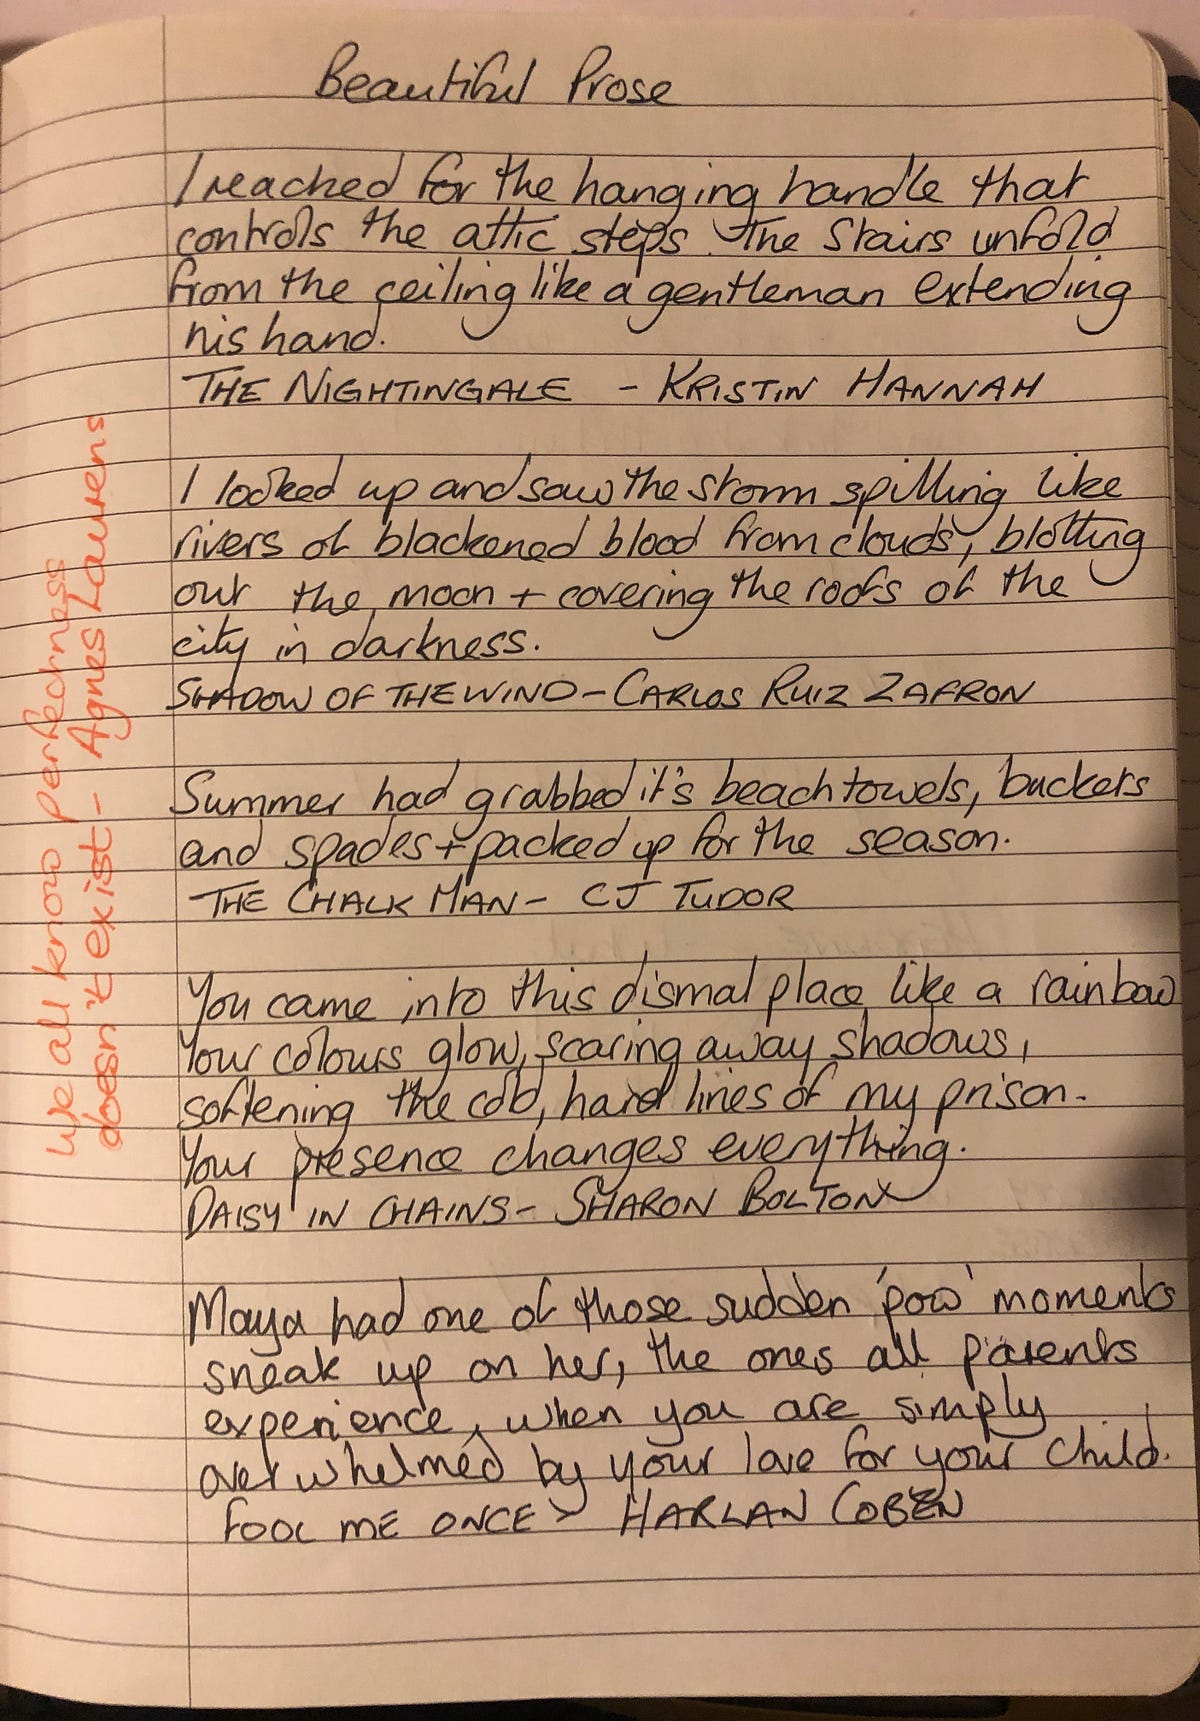 Beautiful Prose
I reached for the hanging handle that
controls the attic steps. The stairs unfold
from the ceiling like a gentleman extending
his hand.
THE NIGHTINGALE - KRISTIN HANNAH
I looked up and saw the storm spilling like
rivers of blackened blood from clouds, blotting
out the moon + covering the roofs of the
city in darkness.
SHADOW OF THE WIND - CARLOS RUIZ ZAFRON
Summer had grabbed it's beach towels, buckets
and spades + packed up for the season.
THE CHALK MAN - CJ TUDOR
You came into this dismal place like a rainbow
Your colours glow, scaring away shadows,
softening the cold, hard lines of my prison.
Your presence changes everything.
DAISY IN CHAINS - SHARON BOLTON
Maya had one of those sudden 'pow' moments
sneak up on her, the ones all parents
experience, when you are simply
overwhelmed by your love for your child.
FOOL ME ONCE - HARLAN COBEN
We all know perfectness
doesn't exist - Agnes Laurens